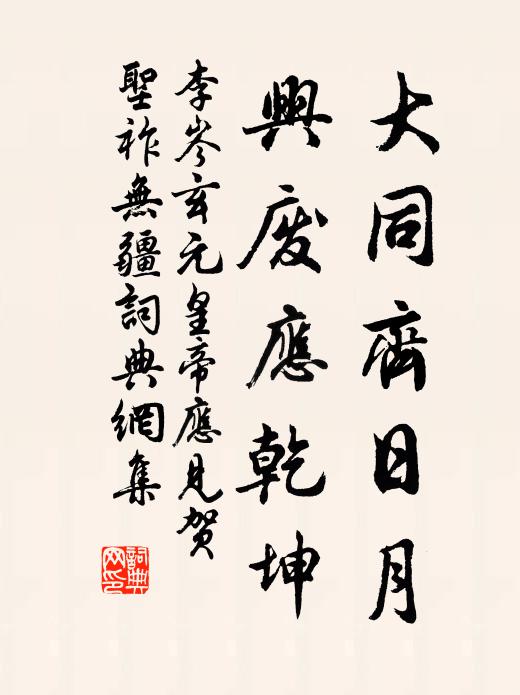 大同齊日月
興廢應乾坤
李岑玄元皇帝應見賀
聖祚無疆詞典網集
詞典
网印